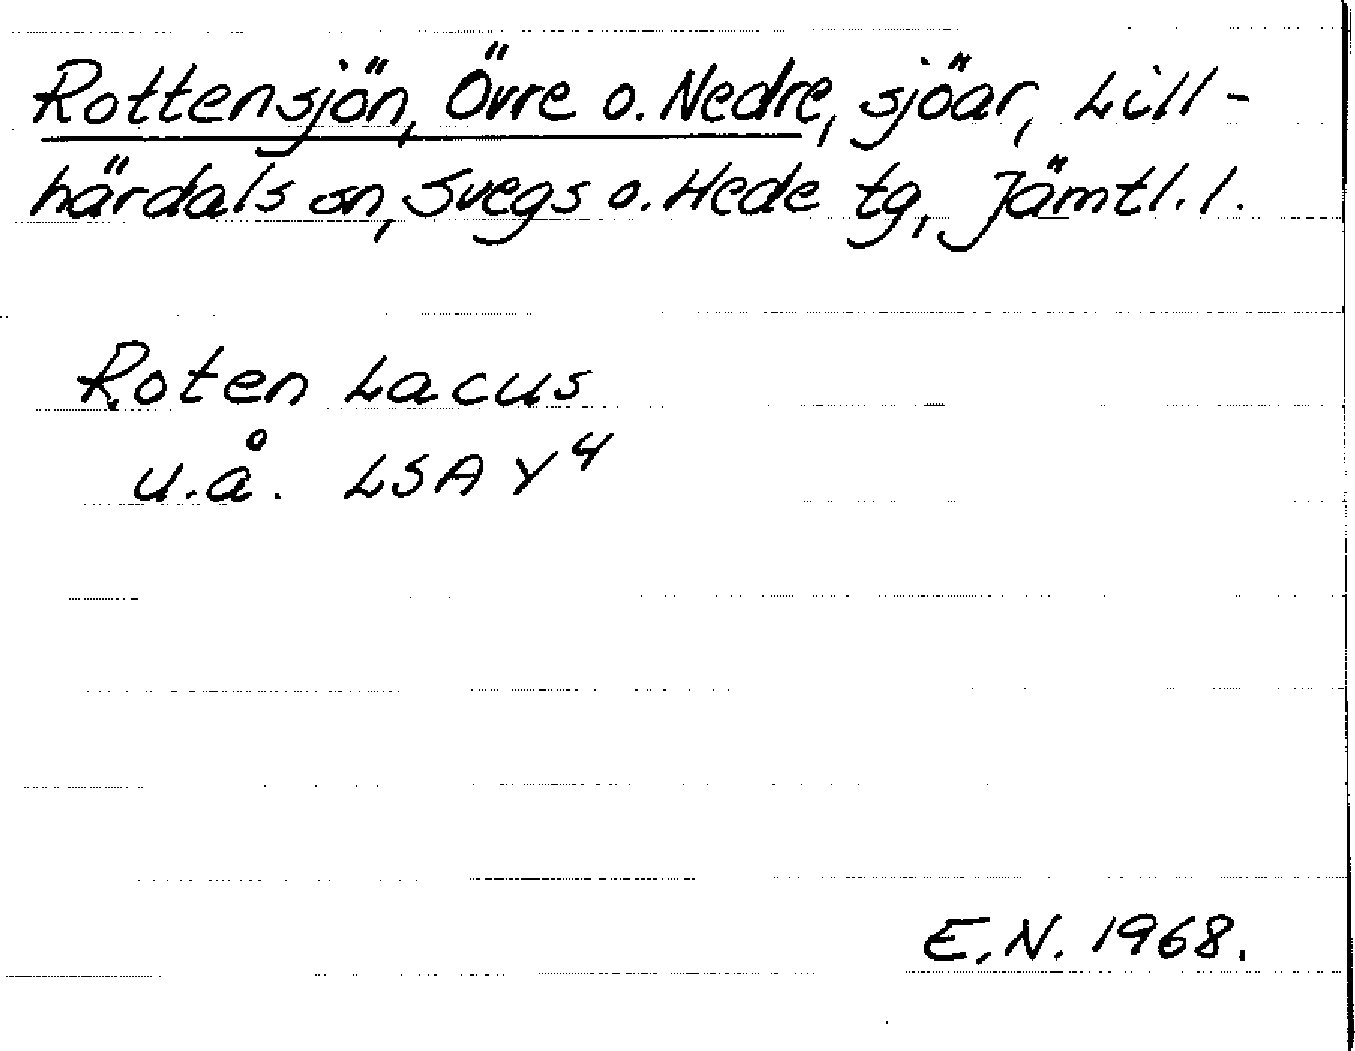 Rottensjön, Övre o. Nedre, sjöar, Lill-
härdals sn, Svegs o. Hede tg, Jämtl. l.
Roten Lacus
u.å. LSA Y⁴
E.N. 1968.